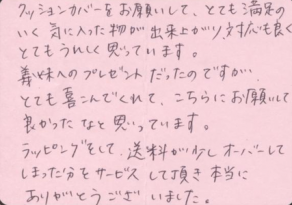 クッションカバーをお願いして、とても満足の
いく気に入った物が出来上がり対応も良く
とてもうれしく思っています。
義妹へのプレゼントだったのですが、
とても喜こんでくれて、こちらにお願いして
良かったなと思いっています。
ラッピングそして、送料が少しオーバーして
しまった分をサービスして頂き本当に
ありがとうございました。